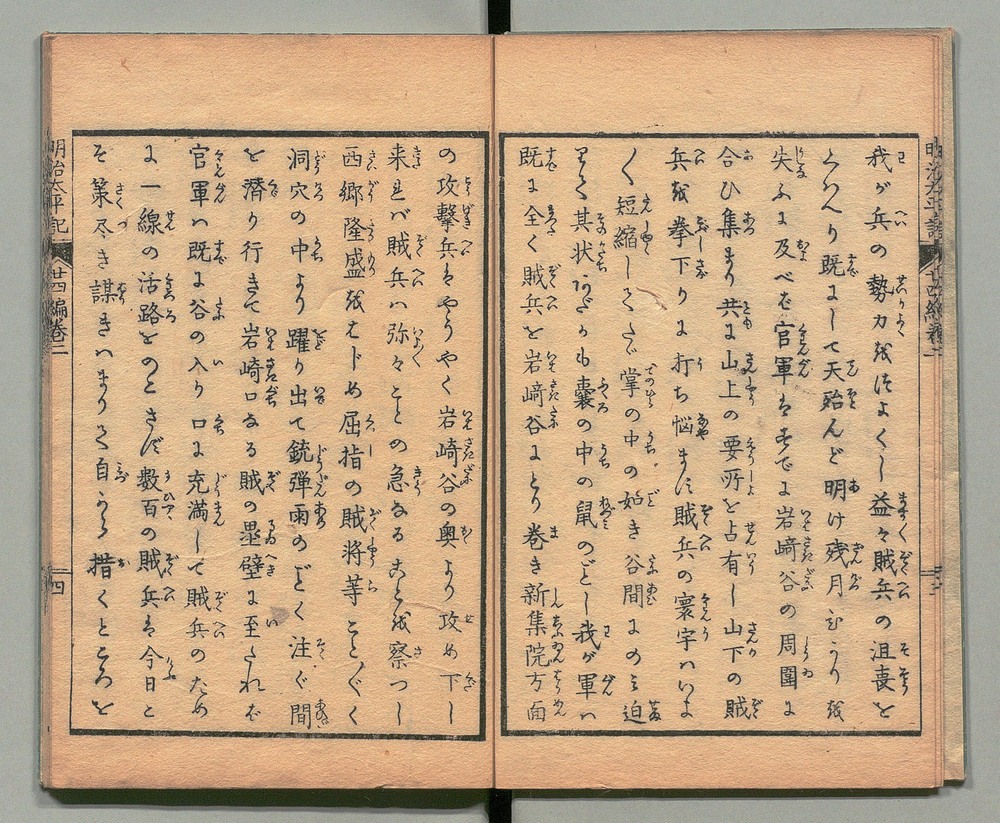 我が兵の勢力をつよくし益々賊兵の沮喪を
くはへり既にして天殆んど明け残月ひかりを
失ふに及べば官軍はすでに岩﨑谷の周圍に
合ひ集まり共に山上の要所を占有し山下の賊
兵を拳下りに打ち悩ます賊兵の寰宇はいよ
〱短縮してたゞ掌の中の如き谷間にのみ迫
りて其状あだかも囊の中の鼠のごとし我が軍は
既に全く賊兵を岩﨑谷にとり巻き新集院方面
の攻撃兵はやうやく岩﨑谷の奥より攻め下し
来れバ賊兵ハ弥々ことの急なることを察つし
西郷隆盛をはじめ屈指の賊将等こと〲く
洞穴の中より躍り出て銃弾雨のごとく注ぐ間
を潜り行きて岩﨑口なる賊の塁壁に至たれば
官軍ハ既に谷の入り口に充満して賊兵のため
に一線の活路をのこさず数百の賊兵は今日と
そ策尽き謀きはまりて自から措くところを
明治太平記
廿四編巻二
四